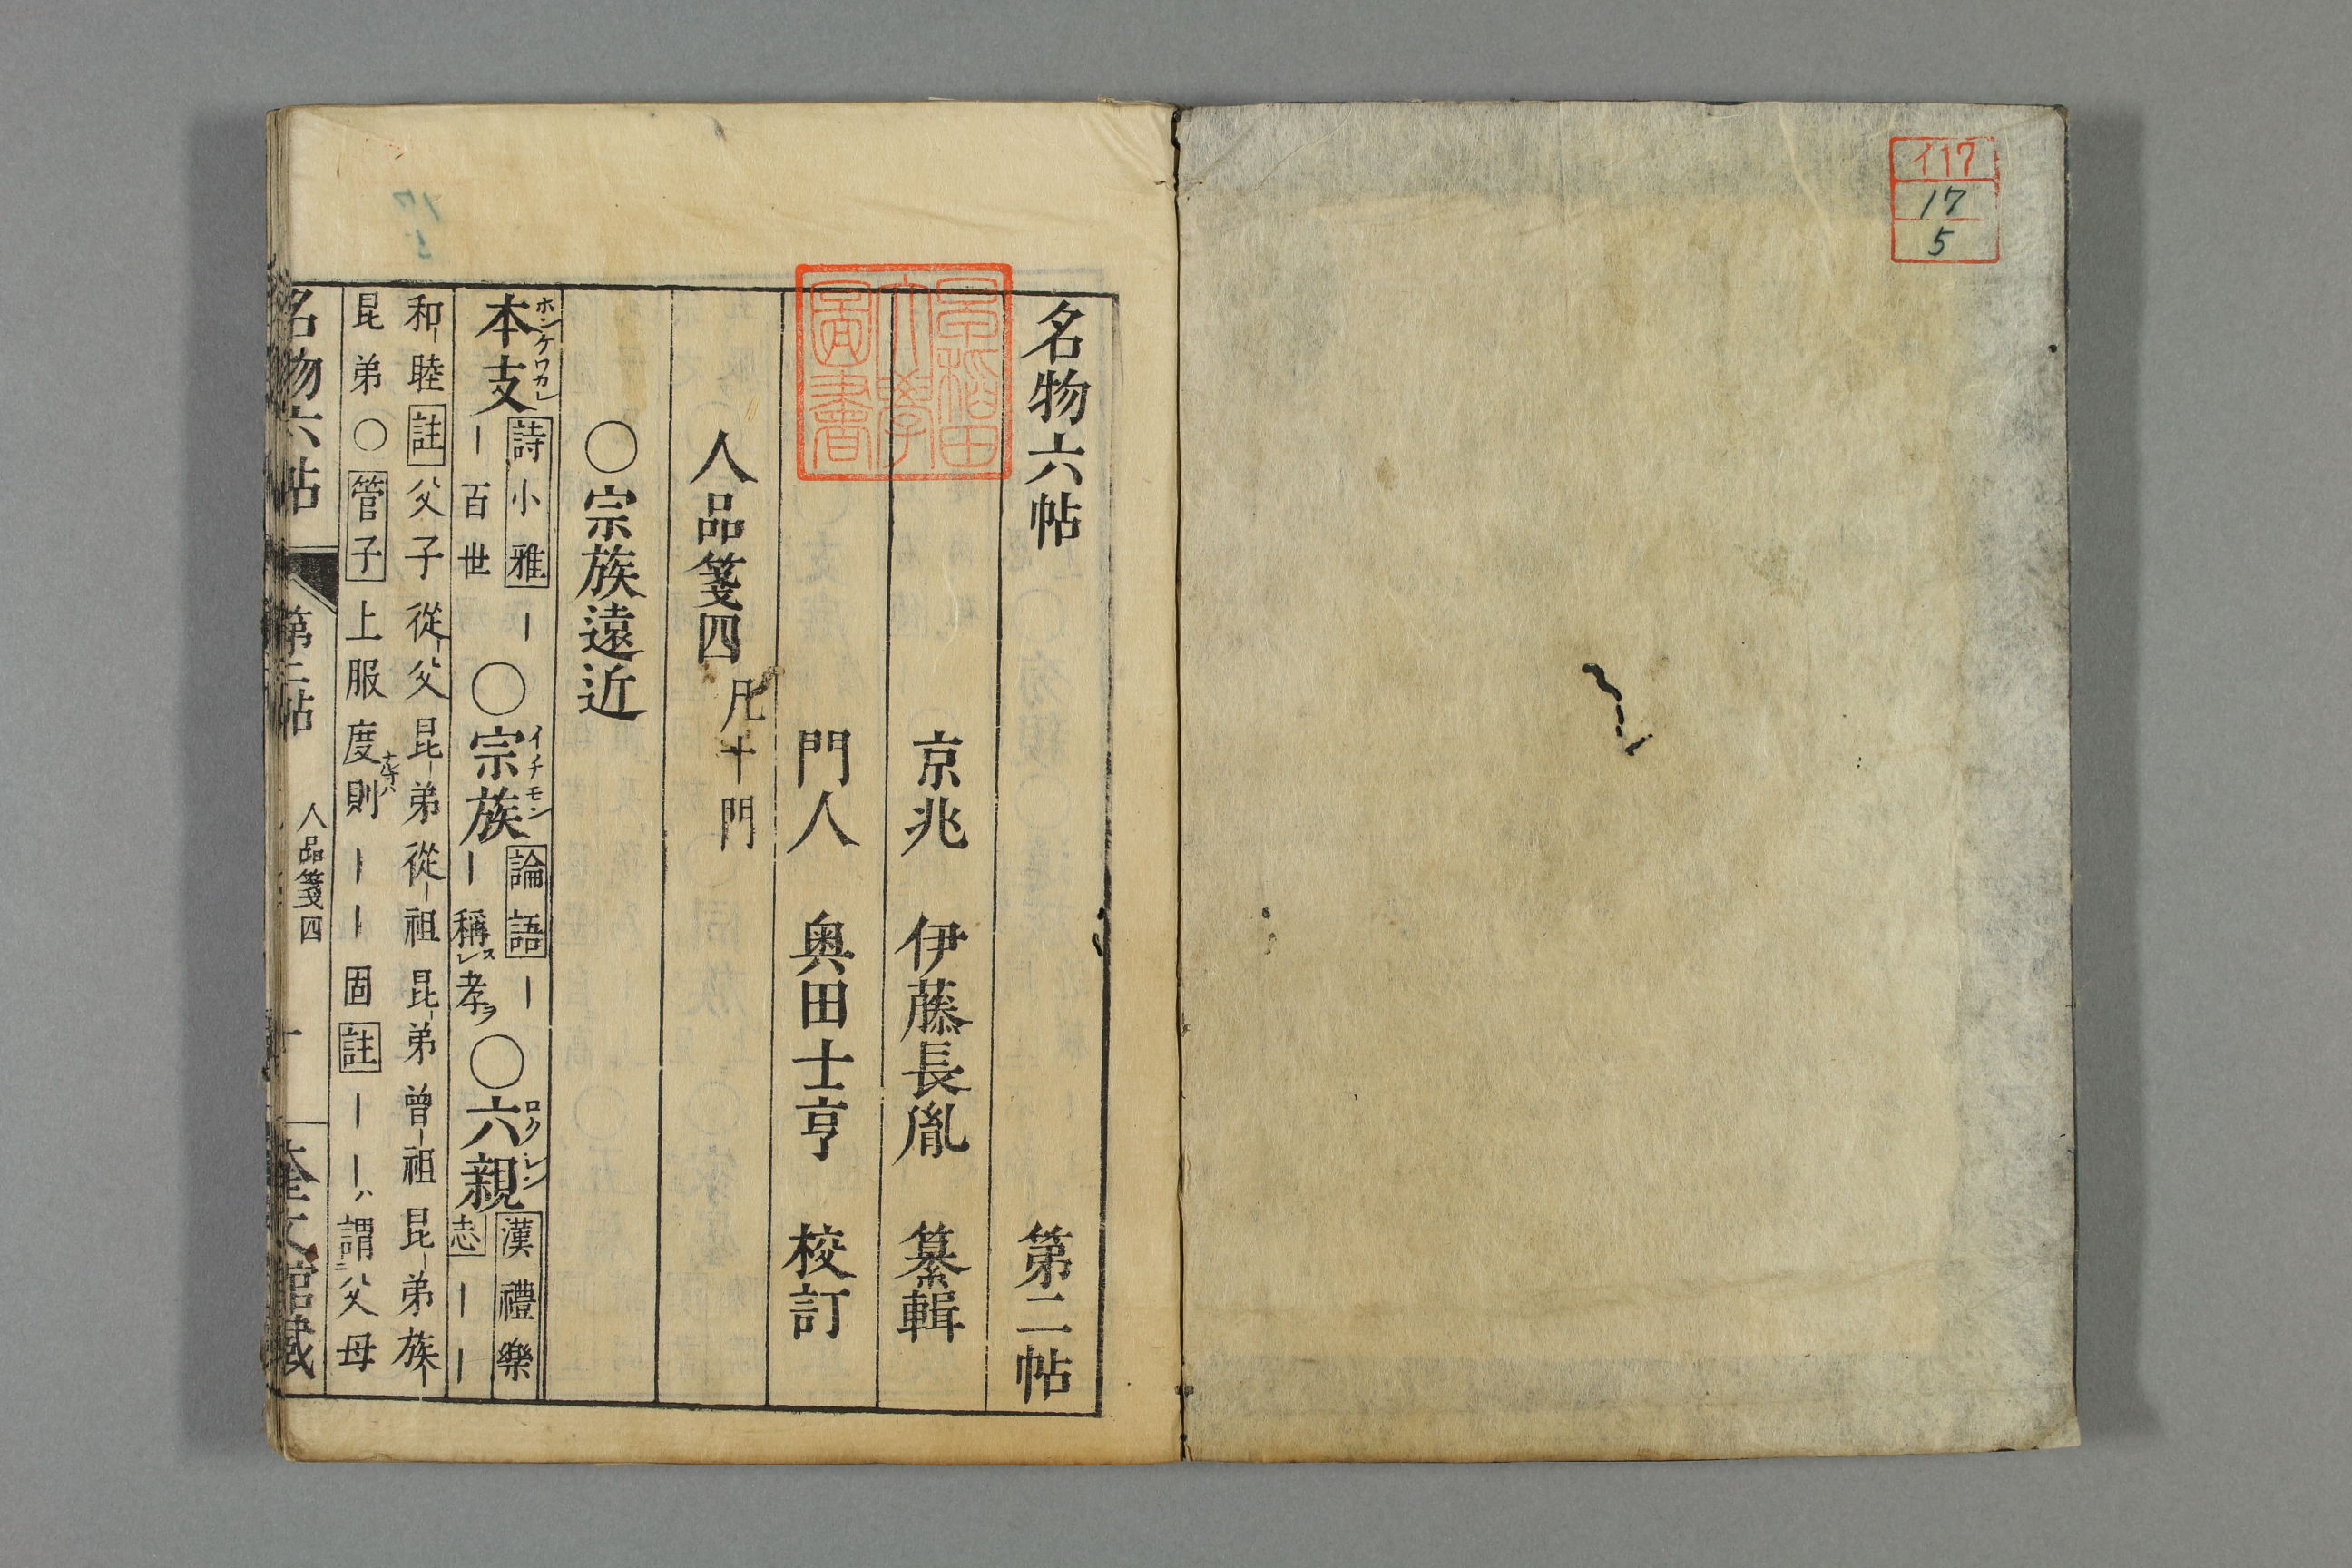 イ17
17
5
名物六帖　第二帖
早稲田大學圖書
京兆　伊藤長胤　纂輯
門人　奥田士亨　校訂
人品箋四　凡十門
○宗族遠近
本支ホンケワカレ 詩小雅｜｜百世○宗族イチモン 論語｜｜稱ス㆑孝ヲ○六親ロクシン 漢禮樂志｜｜
和睦註父子從父昆弟從祖昆弟曾祖昆弟族
昆弟○管子上服度則｜｜固註｜｜ハ謂㆓父母
名物六帖　第二帖　人品箋四　奎文館藏